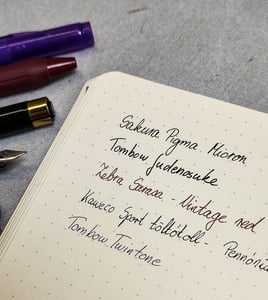 Sakura Pigma Micron
Tombow fudenosuke
Zebra Sarasa - Vintage red
Kaweco Sport töltőtoll -
Tombow Twintone